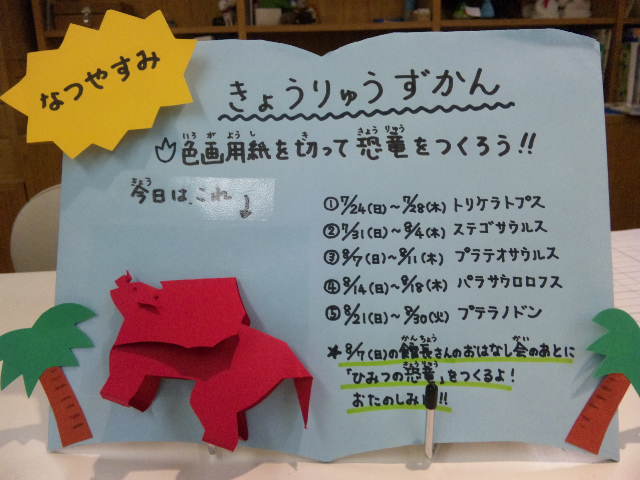 なつやすみ
きょうりゅうずかん
色画用紙を切って恐竜をつくろう!!
今日は、これ↓
①7/24(日)～7/28(木) トリケラトプス
②7/31(日)～8/4(木) ステゴサウルス
③8/7(日)～8/11(木) プラテオサウルス
④8/14(日)～8/18(木) パラサウロロフス
⑤8/21(日)～8/30(火) プテラノドン
★8/7(日)の館長さんのおはなし会のあとに
「ひみつの恐竜」をつくるよ!
おたのしみに!!